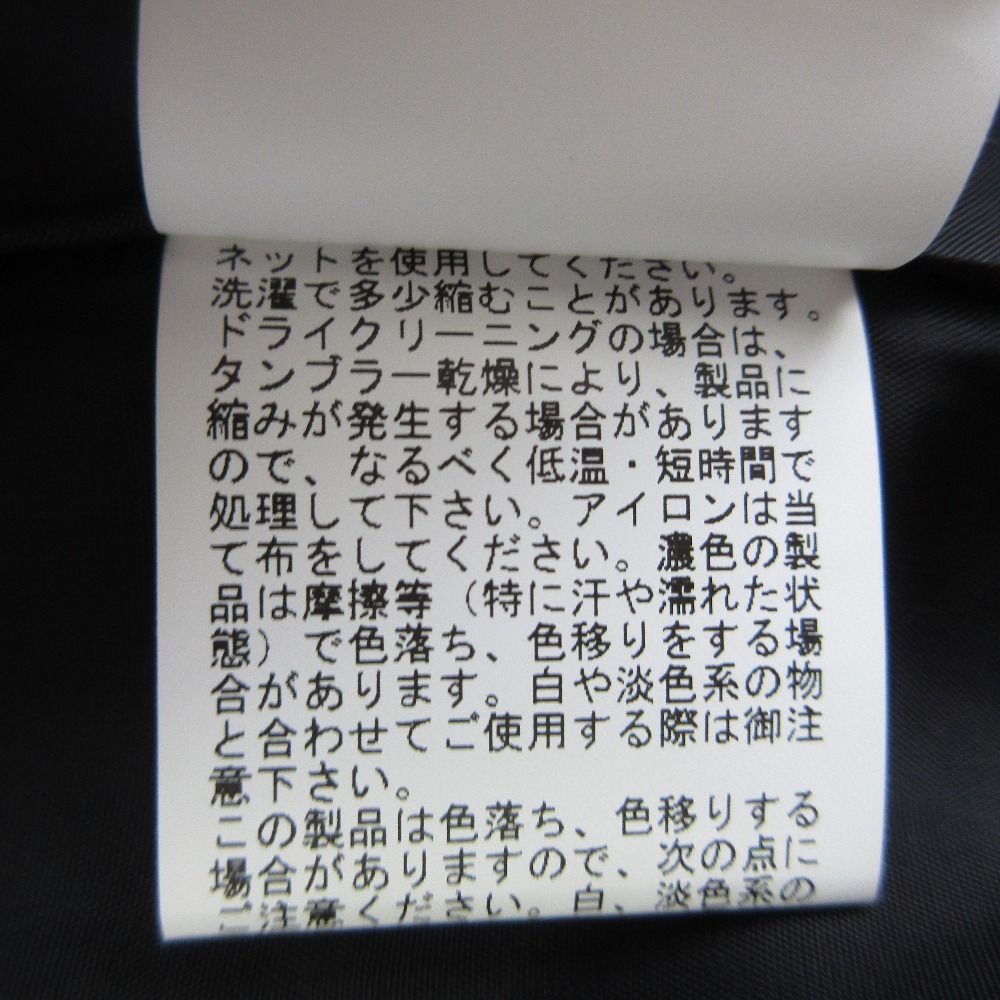 ネットを使用してください。
洗濯で多少縮むことがあります。
ドライクリーニングの場合は、
タンブラー乾燥により、製品に
縮みが発生する場合があります
ので、なるべく低温・短時間で
処理して下さい。アイロンは当
て布をしてください。濃色の製
品は摩擦等（特に汗や濡れた状
態）で色落ち、色移りをする場
合があります。白や淡色系の物
と合わせてご使用する際は御注
意下さい。
この製品は色落ち、色移りする
場合がありますので、次の点に
ご注意ください。白、淡色系の